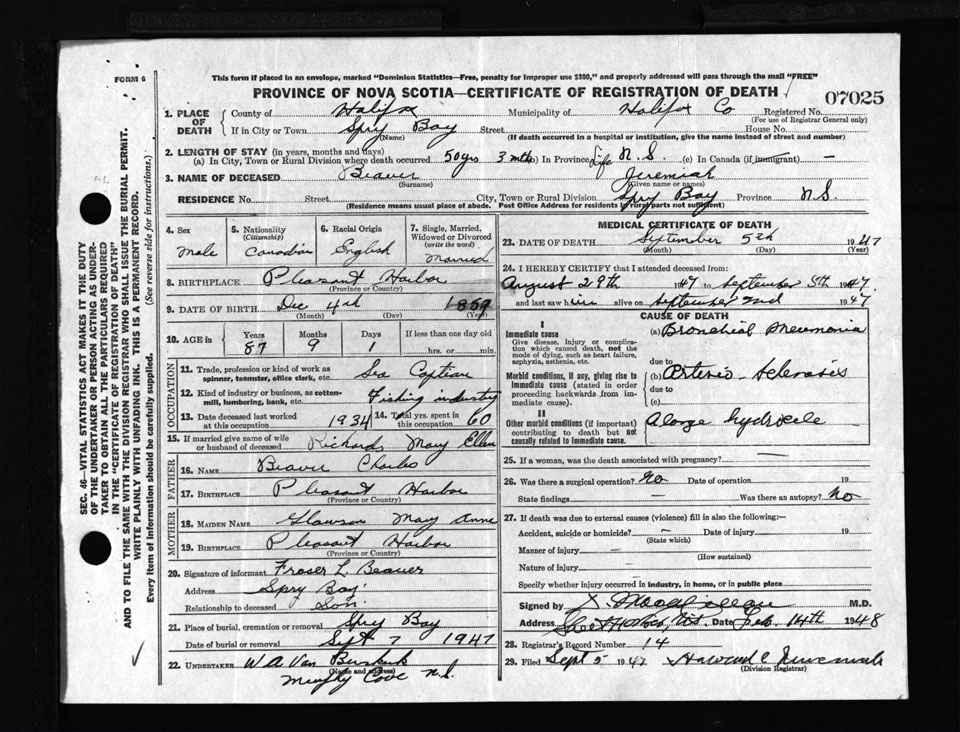 FORM 6
This form if placed in an envelope, marked "Dominion Statistics—Free, penalty for improper use $300," and properly addressed will pass through the mail "FREE"
PROVINCE OF NOVA SCOTIA—CERTIFICATE OF REGISTRATION OF DEATH
07025
1. PLACE OF DEATH
County of Halifax Municipality of Halifax Co Registered No.
(For use of Registrar General only)
If in City or Town Spry Bay Street House No.
(Name) (If death occurred in a hospital or institution, give the name instead of street and number)
2. LENGTH OF STAY (in years, months and days)
(a) In City, Town or Rural Division where death occurred 50 yrs 3 mths (b) In Province Life N.S. (c) In Canada (if immigrant) —
3. NAME OF DECEASED Beaver Jeremiah
(Surname) (Given name or names)
RESIDENCE No. Street City, Town or Rural Division Spry Bay Province N.S.
(Residence means usual place of abode. Post Office Address for residents in rural parts not sufficient)
4. Sex
Male
5. Nationality
(Citizenship)
Canadian
6. Racial Origin
English
7. Single, Married, Widowed or Divorced
(write the word)
Married
8. BIRTHPLACE Pleasant Harbor
(Province or Country)
9. DATE OF BIRTH Dec 4th 1859
(Month) (Day) (Year)
10. AGE in Years Months Days If less than one day old
87 9 1 hrs. or min.
OCCUPATION
11. Trade, profession or kind of work as spinner, teamster, office clerk, etc. Sea Captian
12. Kind of industry or business, as cotton-mill, lumbering, bank, etc. Fishing industry
13. Date deceased last worked at this occupation 1934
14. Total yrs. spent in this occupation 60
15. If married give name of wife or husband of deceased Richards Mary Ellen
FATHER
16. NAME Beaver Charles
17. BIRTHPLACE Pleasant Harbor
(Province or Country)
MOTHER
18. MAIDEN NAME Glawson May Anne
19. BIRTHPLACE Pleasant Harbor
(Province or Country)
20. Signature of informant Fraser L. Beaver
Address Spry Bay
Relationship to deceased Son
21. Place of burial, cremation or removal Spry Bay
Date of burial or removal Sept 7 1947
22. UNDERTAKER W A Van Buskirk
(Name and Address)
Cove N.S.
MEDICAL CERTIFICATE OF DEATH
23. DATE OF DEATH September 5th 1947
(Month) (Day) (Year)
24. I HEREBY CERTIFY that I attended deceased from:
August 29th 1947 to September 5th 1947.
and last saw him alive on September 2nd 1947
CAUSE OF DEATH
I
Immediate cause
Give disease, injury or complication which caused death, not the mode of dying, such as heart failure, asphyxia, asthenia, etc.
(a) Bronchial Pneumonia
due to
Morbid conditions, if any, giving rise to immediate cause (stated in order proceeding backwards from immediate cause).
(b) Arterio-Sclerosis
due to
(c)
II
Other morbid conditions (if important) contributing to death but not causally related to immediate cause.
A large hydrocele
25. If a woman, was the death associated with pregnancy? —
26. Was there a surgical operation? No Date of operation 19
State findings — Was there an autopsy? No
27. If death was due to external causes (violence) fill in also the following:—
Accident, suicide or homicide? — Date of injury 19
(State which)
Manner of injury —
(How sustained)
Nature of injury —
Specify whether injury occurred in industry, in home, or in public place
Signed by M.D.
Address N.S. Date Feb. 14th 1948
28. Registrar's Record Number 14
29. Filed Sept 5 1947 Howard C
(Division Registrar)
SEC. 46—VITAL STATISTICS ACT MAKES IT THE DUTY
OF THE UNDERTAKER OR PERSON ACTING AS UNDER-
TAKER TO OBTAIN ALL THE PARTICULARS REQUIRED
IN THE "CERTIFICATE OF REGISTRATION OF DEATH"
AND TO FILE THE SAME WITH THE DIVISION REGISTRAR WHO SHALL ISSUE THE BURIAL PERMIT.
WRITE PLAINLY WITH UNFADING INK. THIS IS A PERMANENT RECORD.
Every item of information should be carefully supplied. (See reverse side for instructions.)